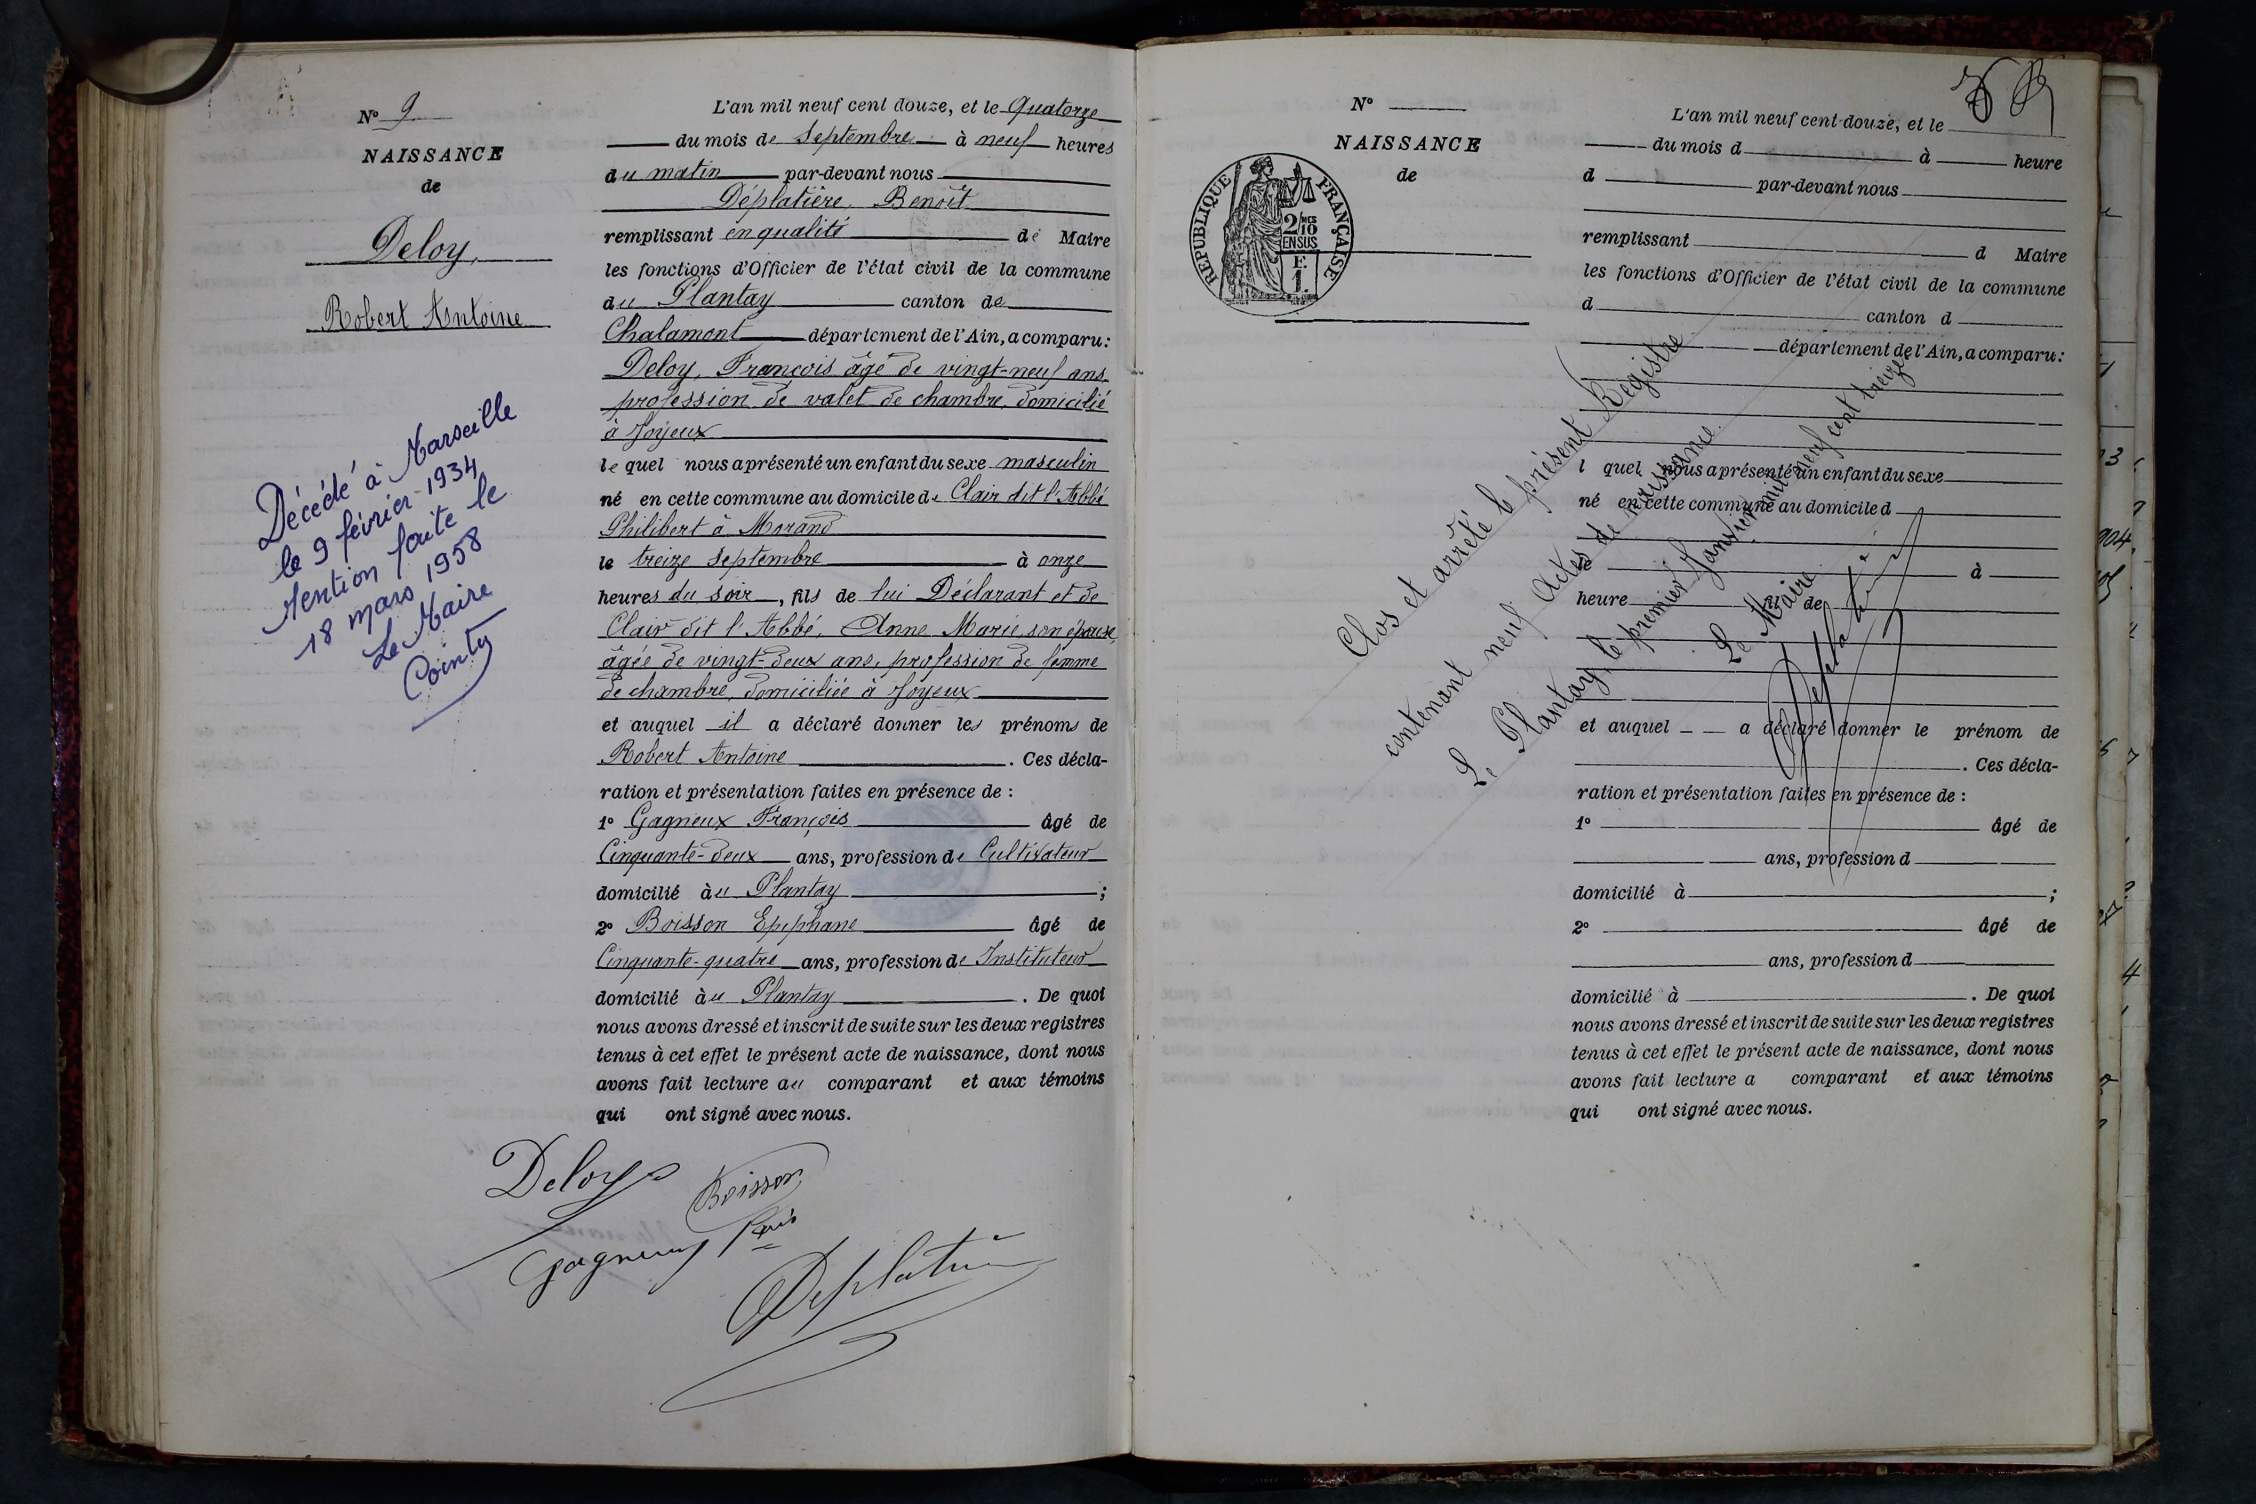 N° 9
NAISSANCE
de
Deloy,
Robert Antoine
Décédé à Marseille
le 9 février 1934
Mention faite le
18 mars 1958
Le Maire
Cointy
L'an mil neuf cent douze, et le Quatorze
du mois de Septembre à neuf heures
du matin par-devant nous
Déplatière Benoît
remplissant en qualité de Maire
les fonctions d'Officier de l'état civil de la commune
du Plantay canton de
Chalamont département de l'Ain, a comparu:
Deloy, François âgé de vingt-neuf ans
profession de valet de chambre, domicilié
à Joyeux
lequel nous a présenté un enfant du sexe masculin
né en cette commune au domicile de Clair dit l'Abbé
Philibert à Morand
le treize Septembre à onze
heures du soir, fils de lui Déclarant et de
Clair dit l'Abbé, Anne Marie, son épouse,
âgée de vingt-deux ans, profession de femme
de chambre, domiciliée à Joyeux
et auquel il a déclaré donner les prénoms de
Robert Antoine. Ces décla-
ration et présentation faites en présence de :
1° Gagneux François âgé de
Cinquante-deux ans, profession de Cultivateur
domicilié au Plantay ;
2° Boisson Epiphane âgé de
Cinquante-quatre ans, profession de Instituteur
domicilié au Plantay. De quoi
nous avons dressé et inscrit de suite sur les deux registres
tenus à cet effet le présent acte de naissance, dont nous
avons fait lecture au comparant et aux témoins
qui ont signé avec nous.
Deloy
Boisson
Gagneux fçois
Déplatière
N°
NAISSANCE
de
REPUBLIQUE FRANÇAISE
2/10 MES
EN SUS
F.
1.
L'an mil neuf cent douze, et le
du mois d à heure
d par-devant nous
remplissant d Maire
les fonctions d'Officier de l'état civil de la commune
d canton d
département de l'Ain, a comparu:
l quel nous a présenté un enfant du sexe
né en cette commune au domicile d
le à
heure de
et auquel a déclaré donner le prénom de
. Ces décla-
ration et présentation faites en présence de :
1° âgé de
ans, profession d
domicilié à ;
2° âgé de
ans, profession d
domicilié à . De quoi
nous avons dressé et inscrit de suite sur les deux registres
tenus à cet effet le présent acte de naissance, dont nous
avons fait lecture a comparant et aux témoins
qui ont signé avec nous.
Clos et arrêté le présent Registre
contenant neuf actes de naissance.
Le Plantay, le premier Janvier mil neuf cent treize
Le Maire
Déplatière